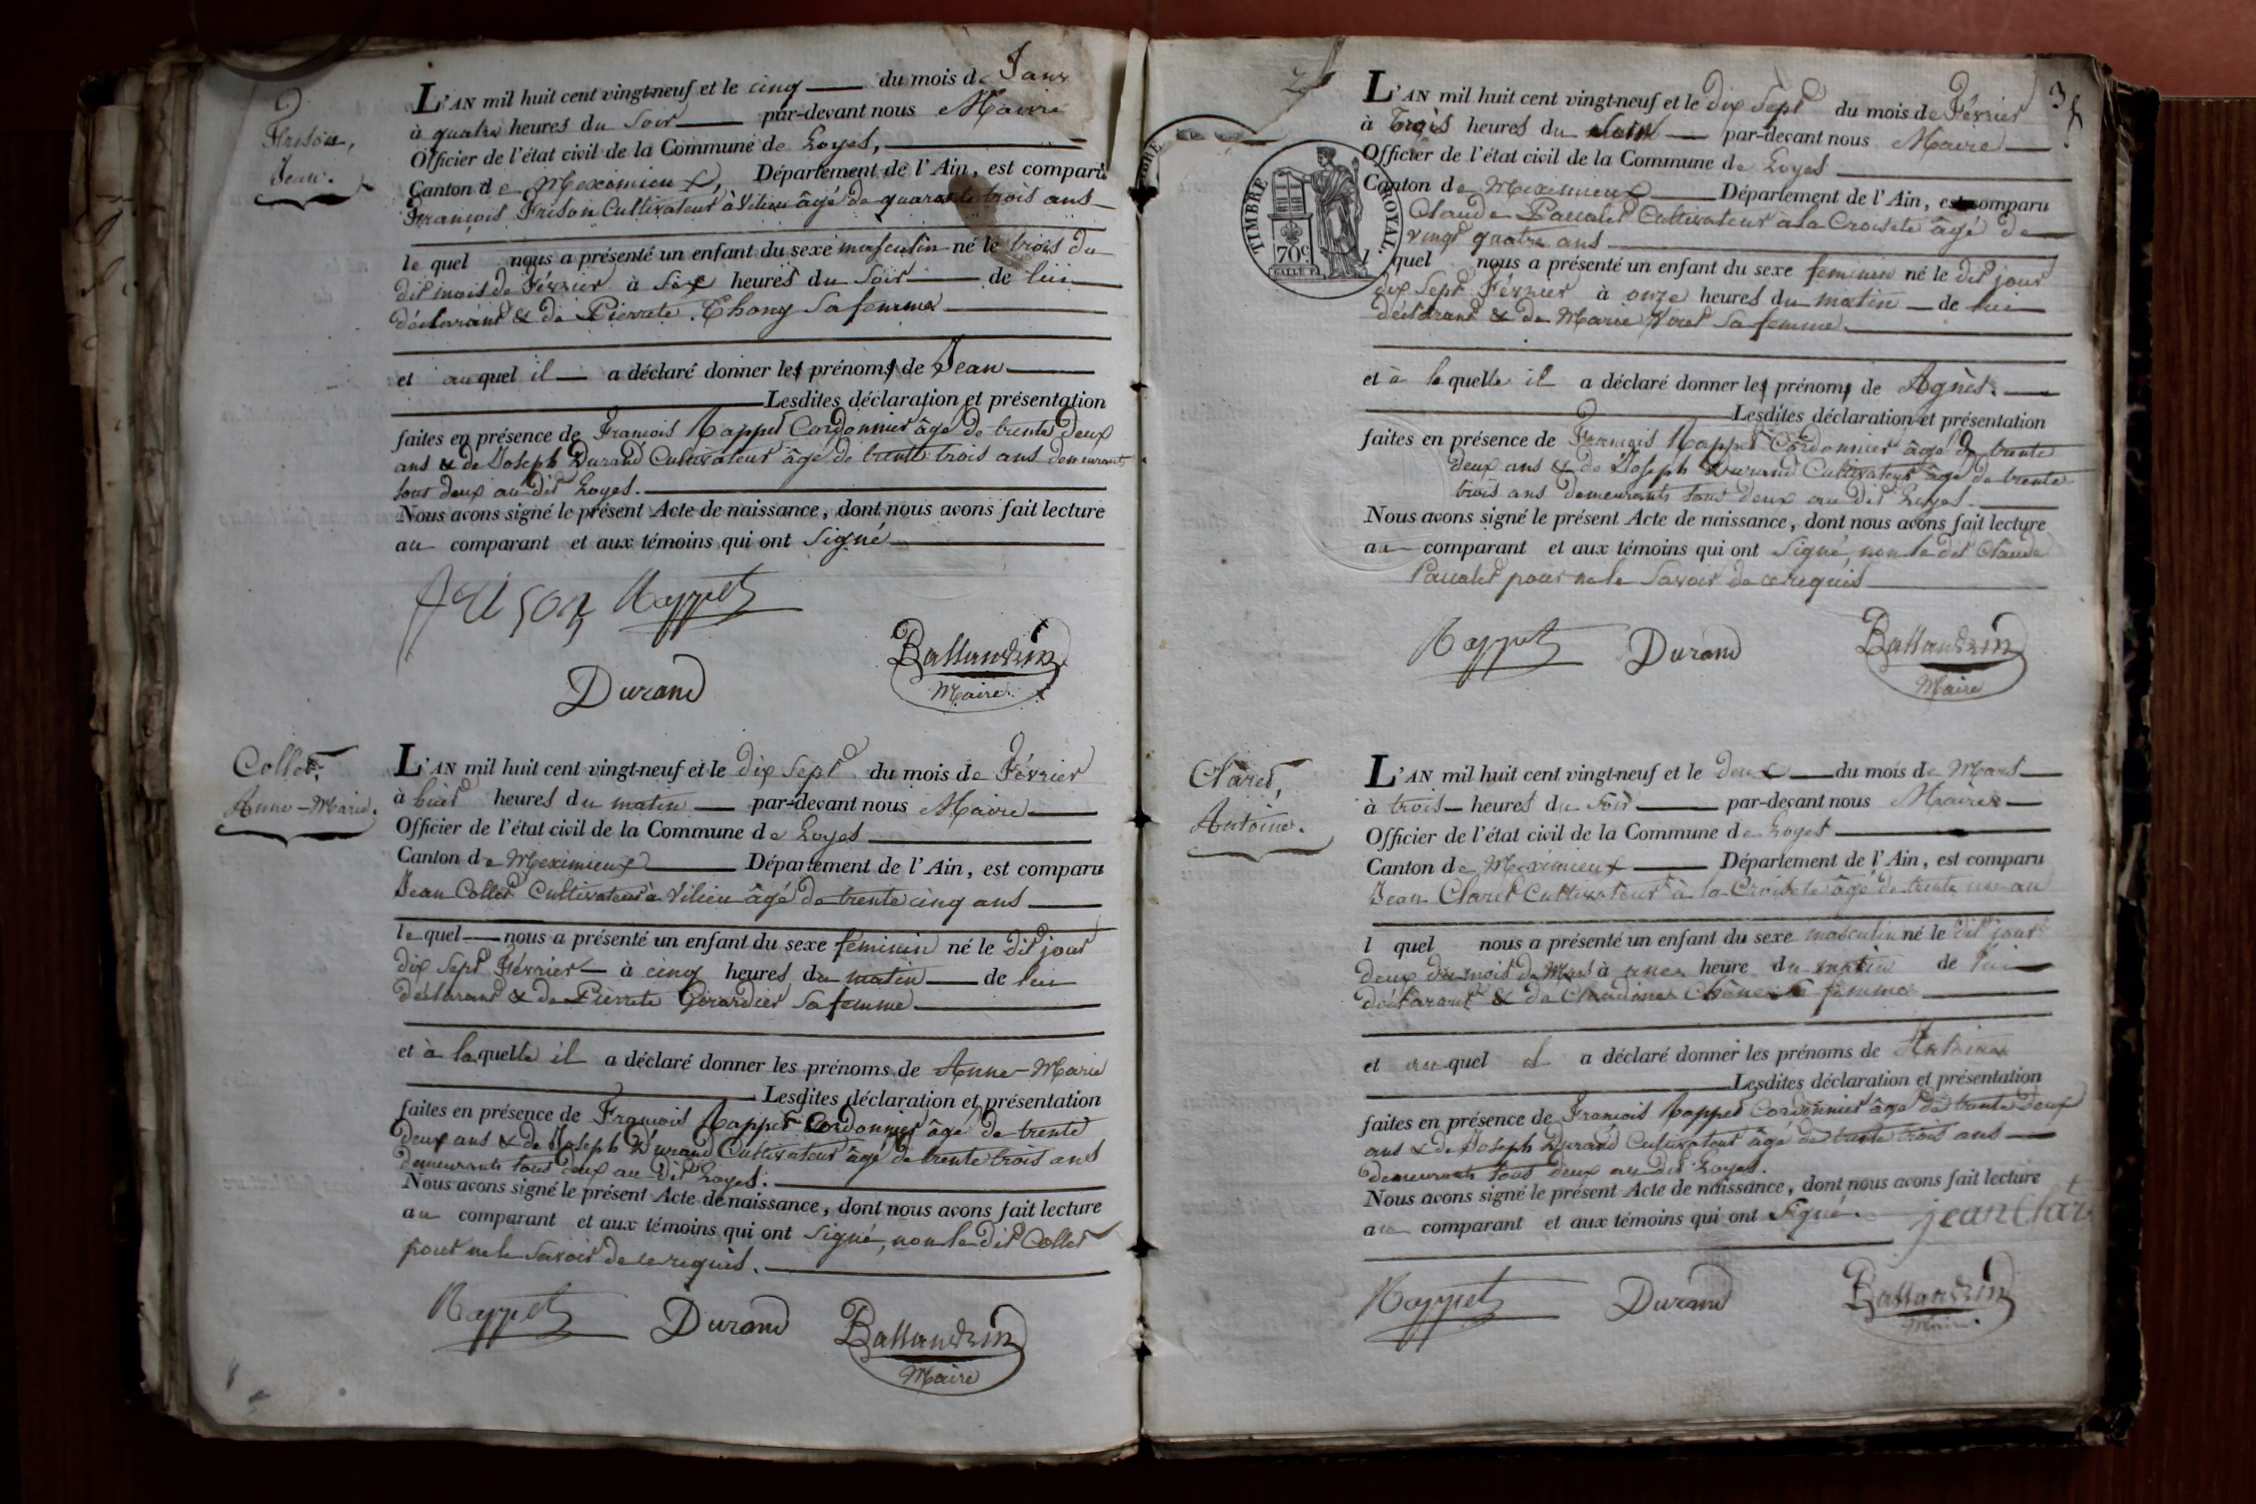 Frison,
Jean.
L'AN mil huit cent vingt-neuf et le cinq du mois de
à quatre heures du soir par-devant nous Maire
Officier de l'état civil de la Commune de Loyes,
Canton de Meximieux, Département de l'Ain, est comparu
François Frison Cultivateur à Vilieu âgé de quarante trois ans
le quel nous a présenté un enfant du sexe masculin né le trois du
dit mois de Février à six heures du soir de lui
déclarant & de Pierrete Thony sa femme
et au quel il a déclaré donner les prénoms de Jean
Lesdites déclaration et présentation
faites en présence de François Rappet Cordonnier âgé de trente deux
ans & de Joseph Durand Cultivateur âgé de trente trois ans demeurant
tous deux au dit Loyes.
Nous avons signé le présent Acte de naissance, dont nous avons fait lecture
au comparant et aux témoins qui ont signé
frison Rappet
Durand
Ballandrin
Maire
Collet,
Anne-Marie.
L'AN mil huit cent vingt-neuf et le dix sept du mois de Février
à huit heures du matin par-devant nous Maire
Officier de l'état civil de la Commune de Loyes
Canton de Meximieux Département de l'Ain, est comparu
Jean Collet Cultivateur à Vilieu âgé de trente cinq ans
le quel nous a présenté un enfant du sexe féminin né le dit jour
dix sept Février à cinq heures du matin de lui
déclarant & de Pierrete Girardier sa femme
et à la quelle il a déclaré donner les prénoms de Anne-Marie
Lesdites déclaration et présentation
faites en présence de François Rappet Cordonnier âgé de trente
deux ans & de Joseph Durand Cultivateur âgé de trente trois ans
demeurants tous deux au dit Loyes.
Nous avons signé le présent Acte de naissance, dont nous avons fait lecture
au comparant et aux témoins qui ont signé, non le dit Collet
pour ne le savoir de ce requis.
Rappet Durand Ballandrin
Maire
3
TIMBRE ROYAL.
70c
L'AN mil huit cent vingt-neuf et le dix sept du mois de Février
à trois heures du soir par-devant nous Maire
Officier de l'état civil de la Commune de Loyes
Canton de Meximieux Département de l'Ain, est comparu
Claude Pascalet Cultivateur à la Croisete âgé de
vingt quatre ans
l quel nous a présenté un enfant du sexe feminin né le dit jour
dix sept Février à onze heures du matin de lui
déclarant & de Marie sa femme
et à la quelle il a déclaré donner les prénoms de Agnès.
Lesdites déclaration et présentation
faites en présence de François Rappet Cordonnier âgé de trente
deux ans & de Joseph Durand Cultivateur âgé de trente
trois ans demeurants tous deux au dit Loyes.
Nous avons signé le présent Acte de naissance, dont nous avons fait lecture
au comparant et aux témoins qui ont signé, non le dit Claude
Pascalet pour ne le savoir de ce requis
Rappet Durand Ballandrin
Maire
Claret,
Antoine.
L'AN mil huit cent vingt-neuf et le deux du mois de Mars
à trois heures du soir par-devant nous Maire
Officier de l'état civil de la Commune de Loyes
Canton de Meximieux Département de l'Ain, est comparu
Jean Claret Cultivateur à la Croisete âgé de trente un an
l quel nous a présenté un enfant du sexe masculin né le dit jour
deux du mois de Mars à une heure du matin de lui
déclarant & de Claudine femme
et au quel il a déclaré donner les prénoms de Antoine
Lesdites déclaration et présentation
faites en présence de François Rappet Cordonnier âgé de trente deux
ans & de Joseph Durand Cultivateur âgé de trente trois ans
demeurants tous deux au dit Loyes.
Nous avons signé le présent Acte de naissance, dont nous avons fait lecture
au comparant et aux témoins qui ont signé. jean
Rappet Durand Ballandrin
Maire